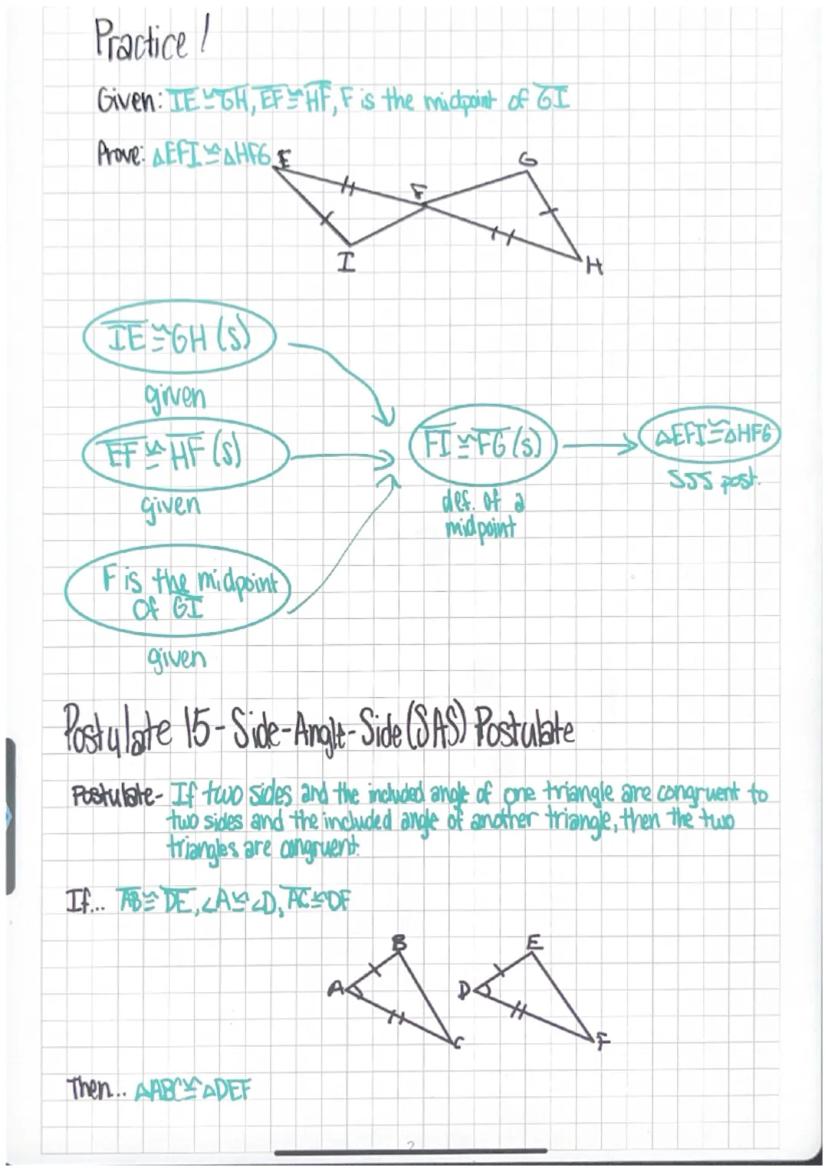 Practice!
Given: IE≅GH, EF≅HF, F is the midpoint of GI
Prove: △EFI≅△HFG
E
G
F
I
H
IE≅GH (s)
given
EF≅HF (s)
given
F is the midpoint
of GI
given
FI≅FG (s)
def. of a
midpoint
△EFI≅△HFG
SSS post.
Postulate 15-Side-Angle-Side (SAS) Postulate
Postulate- If two sides and the included angle of one triangle are congruent to
two sides and the included angle of another triangle, then the two
triangles are congruent.
If... AB≅DE, ∠A≅∠D, AC≅DF
B
E
A
D
C
F
Then... △ABC≅△DEF
2